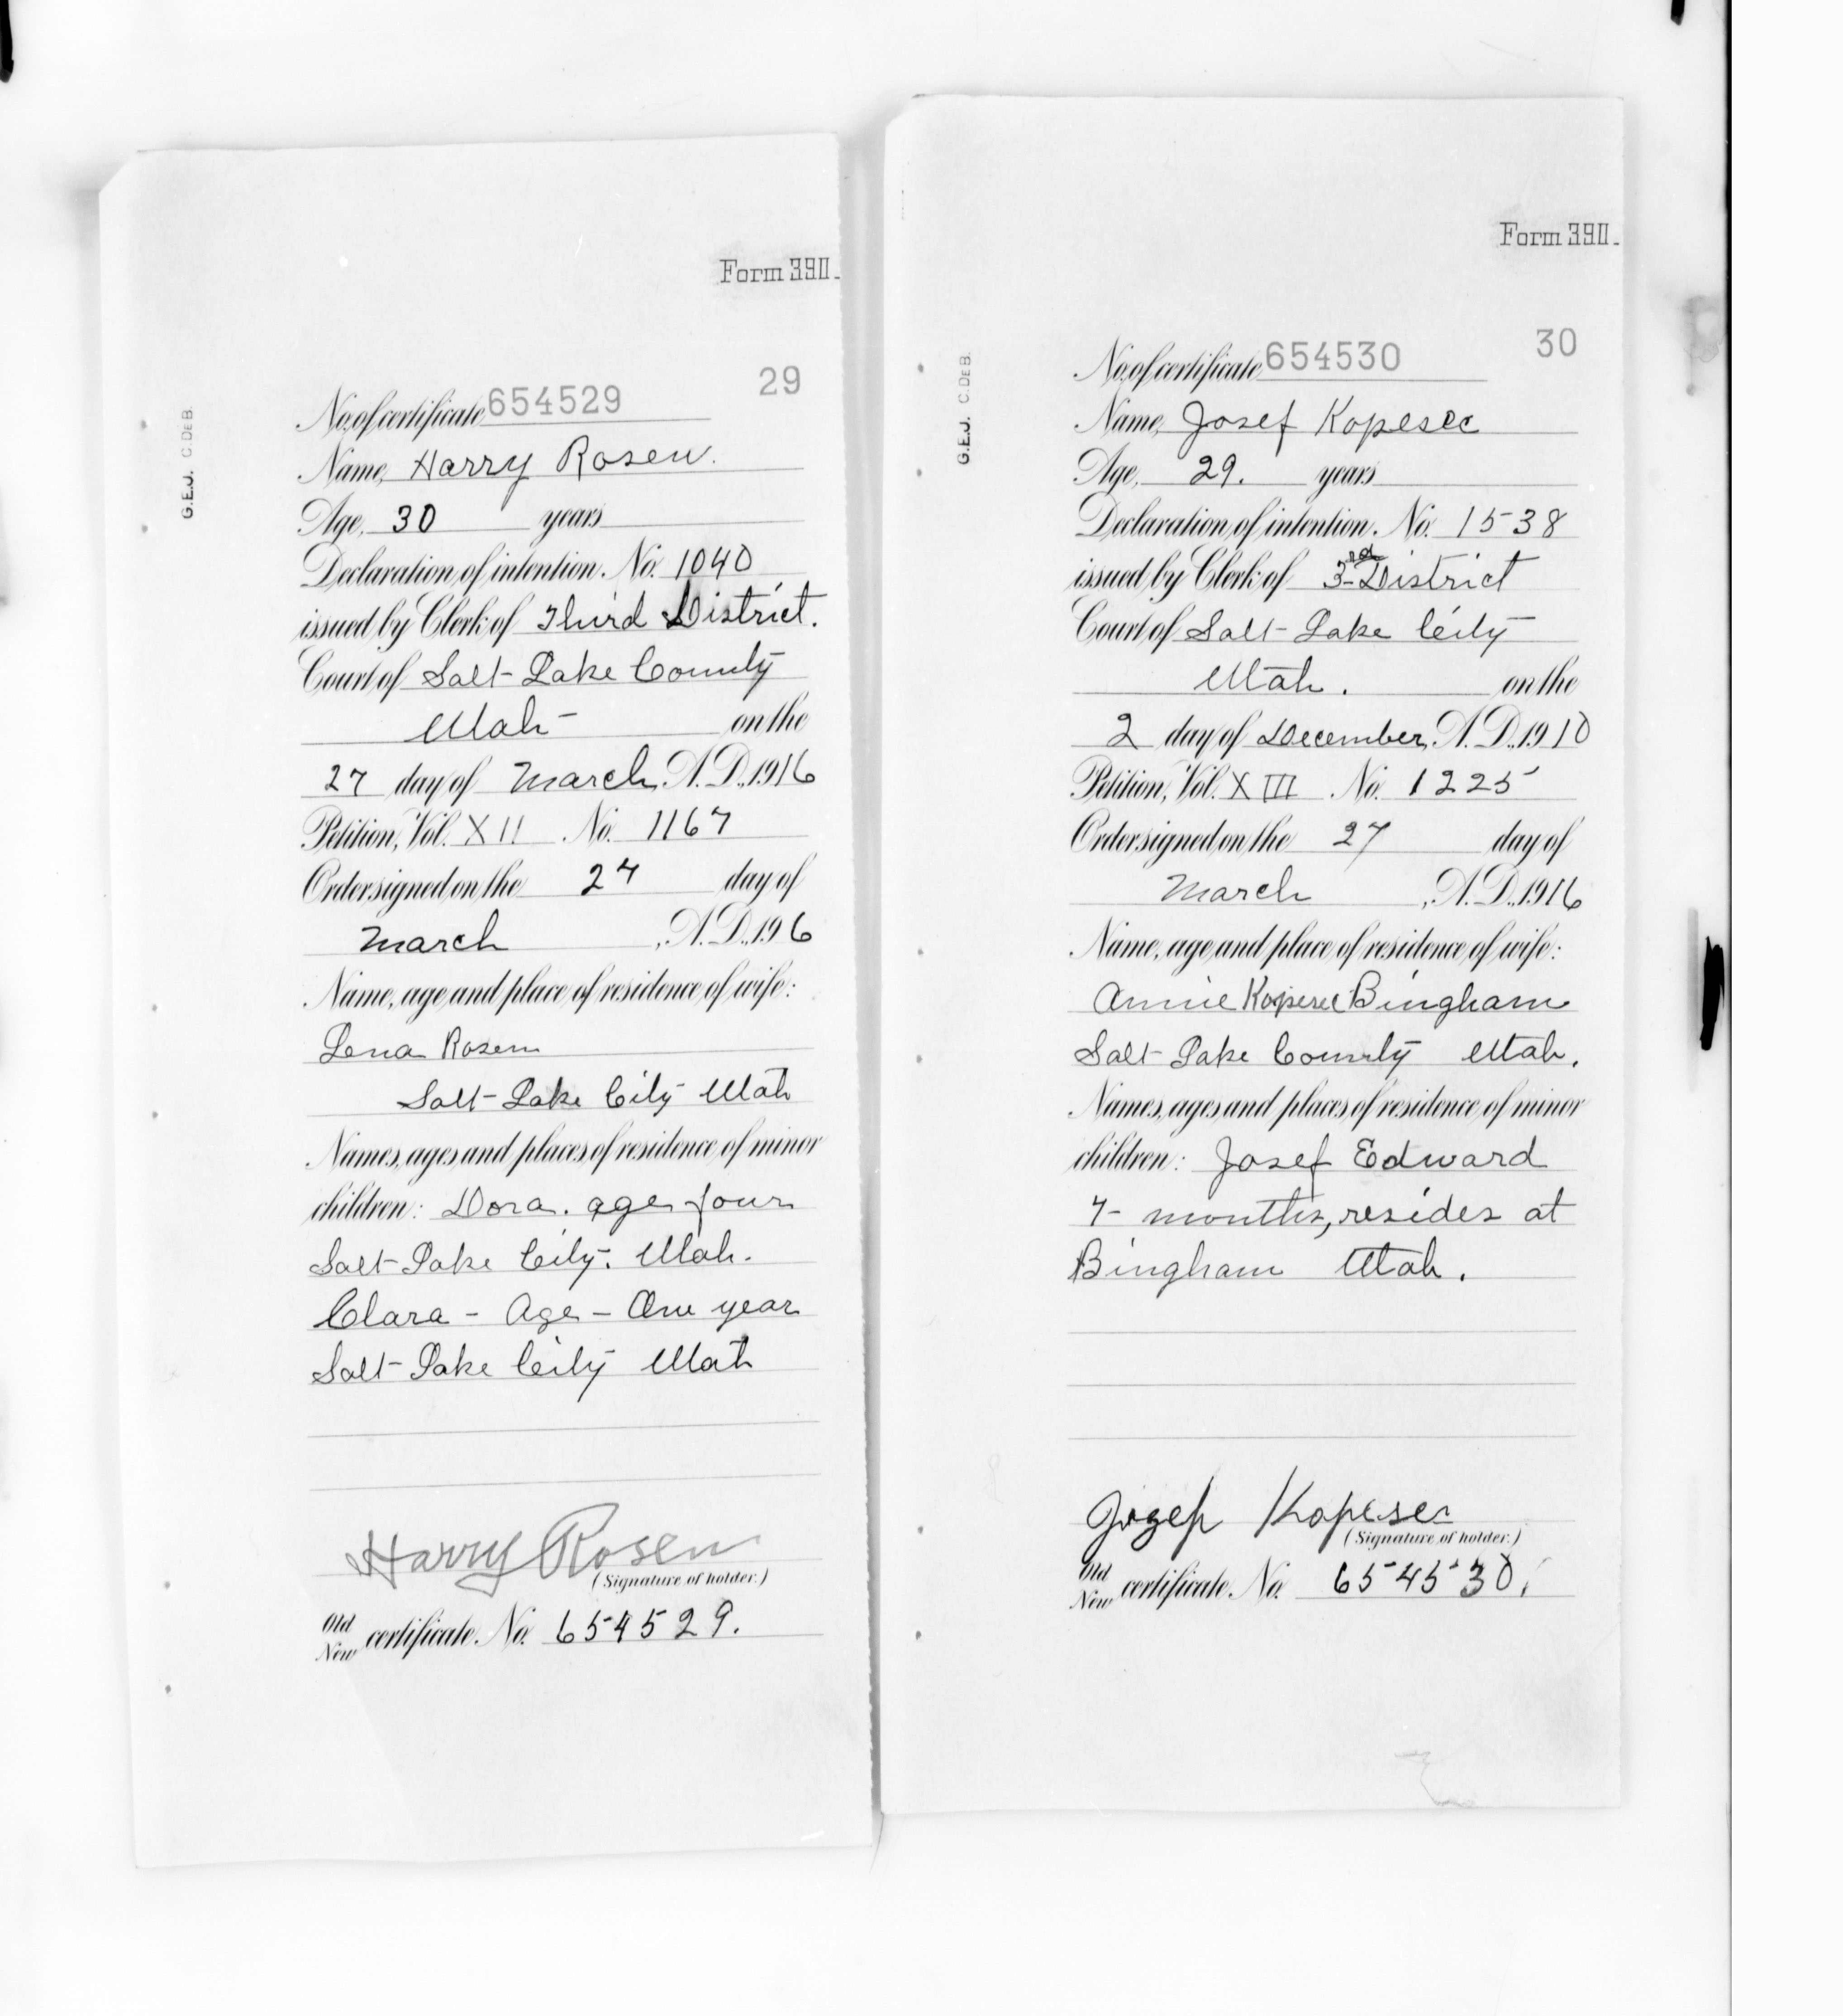 Form 390.
29
G.E.J. C.DEB.
No. of certificate, 654529
Name, Harry Rosen.
Age, 30 years
Declaration of intention. No. 1040
issued by Clerk of Third District.
Court of Salt Lake County
Utah on the
27 day of March, A. D., 1916
Petition, Vol. XII No. 1167
Order signed on the 27 day of
March, A. D., 19 6
Name, age and place of residence of wife:
Lena Rosen
Salt Lake City Utah
Names, ages and places of residence of minor
children: Dora. age four
Salt Lake City. Utah.
Clara - Age - One year
Salt Lake City Utah
Harry Rosen
(Signature of holder.)
Old
New certificate. No. 654529.
Form 390.
30
G.E.J. C.DEB.
No. of certificate, 654530
Name, Josef Kopesec
Age, 29. years
Declaration of intention. No. 1538
issued by Clerk of 3rd District
Court of Salt Lake City
Utah. on the
2 day of December, A. D., 1910
Petition, Vol. XIII No. 1225
Order signed on the 27 day of
March, A. D., 1916
Name, age and place of residence of wife:
Annie Kopesec Bingham
Salt Lake County Utah.
Names, ages and places of residence of minor
children: Josef Edward
7 - months, resides at
Bingham Utah.
Jozef Kopesec
(Signature of holder.)
Old
New certificate. No. 654530.